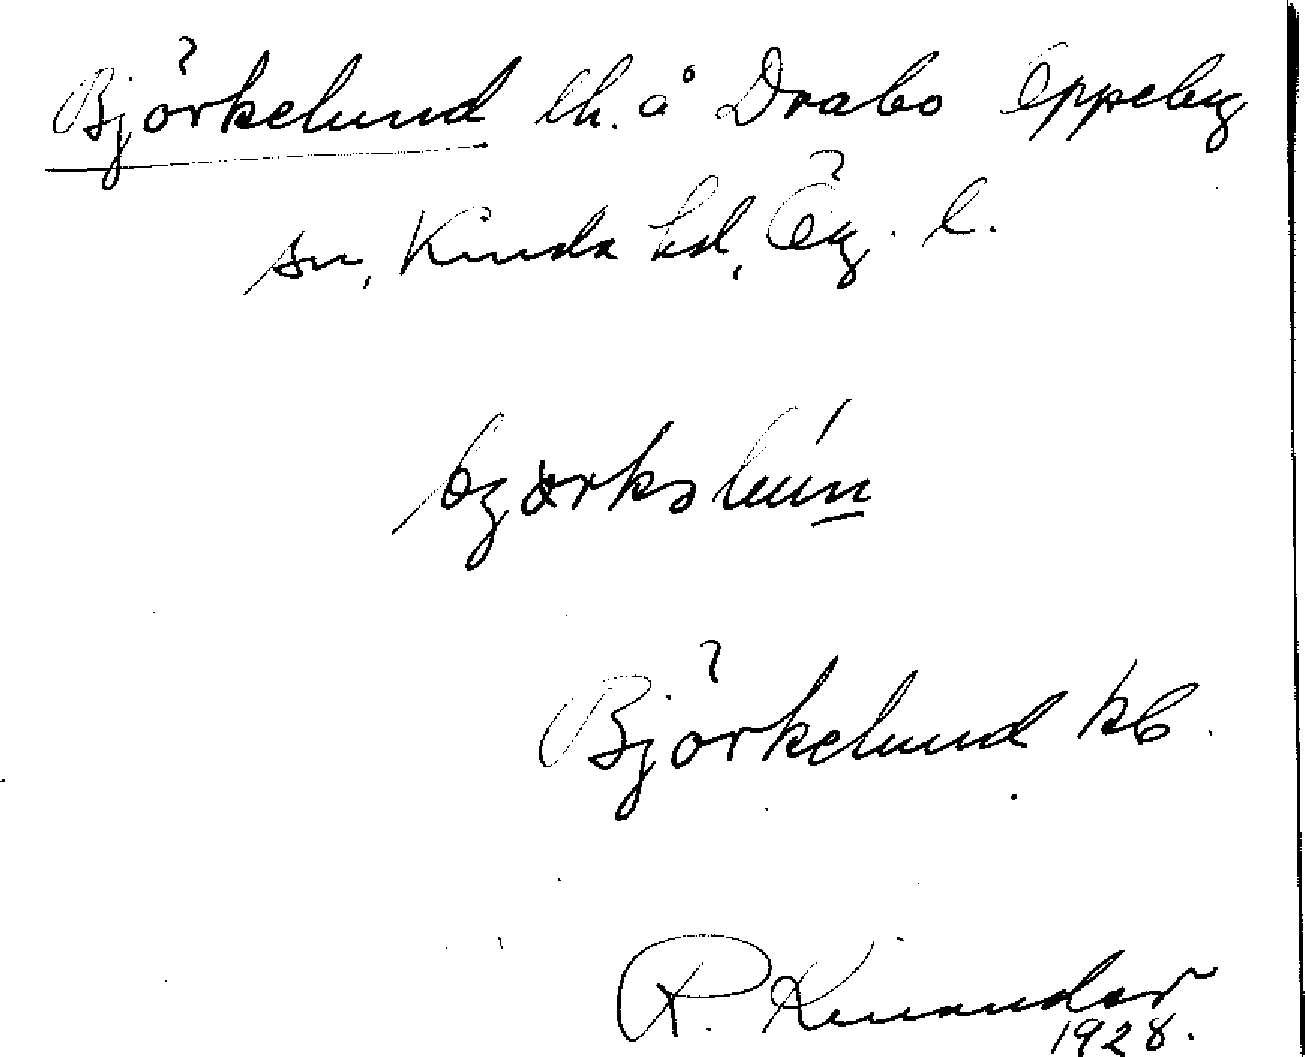 Björkelund lh. å Drabo Oppeby
sn, Kinda hd, Ög. l.
bjœrkəlún
Björkelund kb.
R. Kinander
1928.